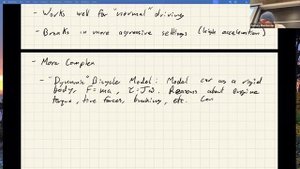 - Works well for "normal" driving
- Breaks in more aggressive settings (high acceleration)
- More Complex
- "Dynamic" Bicycle Model: Model car as a rigid
body, F=ma, τ=Jω. Reasons about engine
torque, tire forces, braking, etc. Can